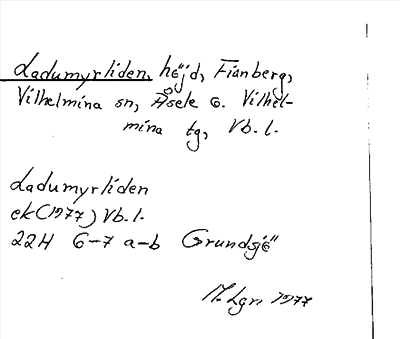 Ladumyrliden, höjd, Fianberg,
Vilhelmina sn, Åsele o. Vilhel-
mina tg, Vb. l.
Ladumyrliden
ek (1977) Vb. l.
22H 6-7 a-b Grundsjö
M. Lgn 1977